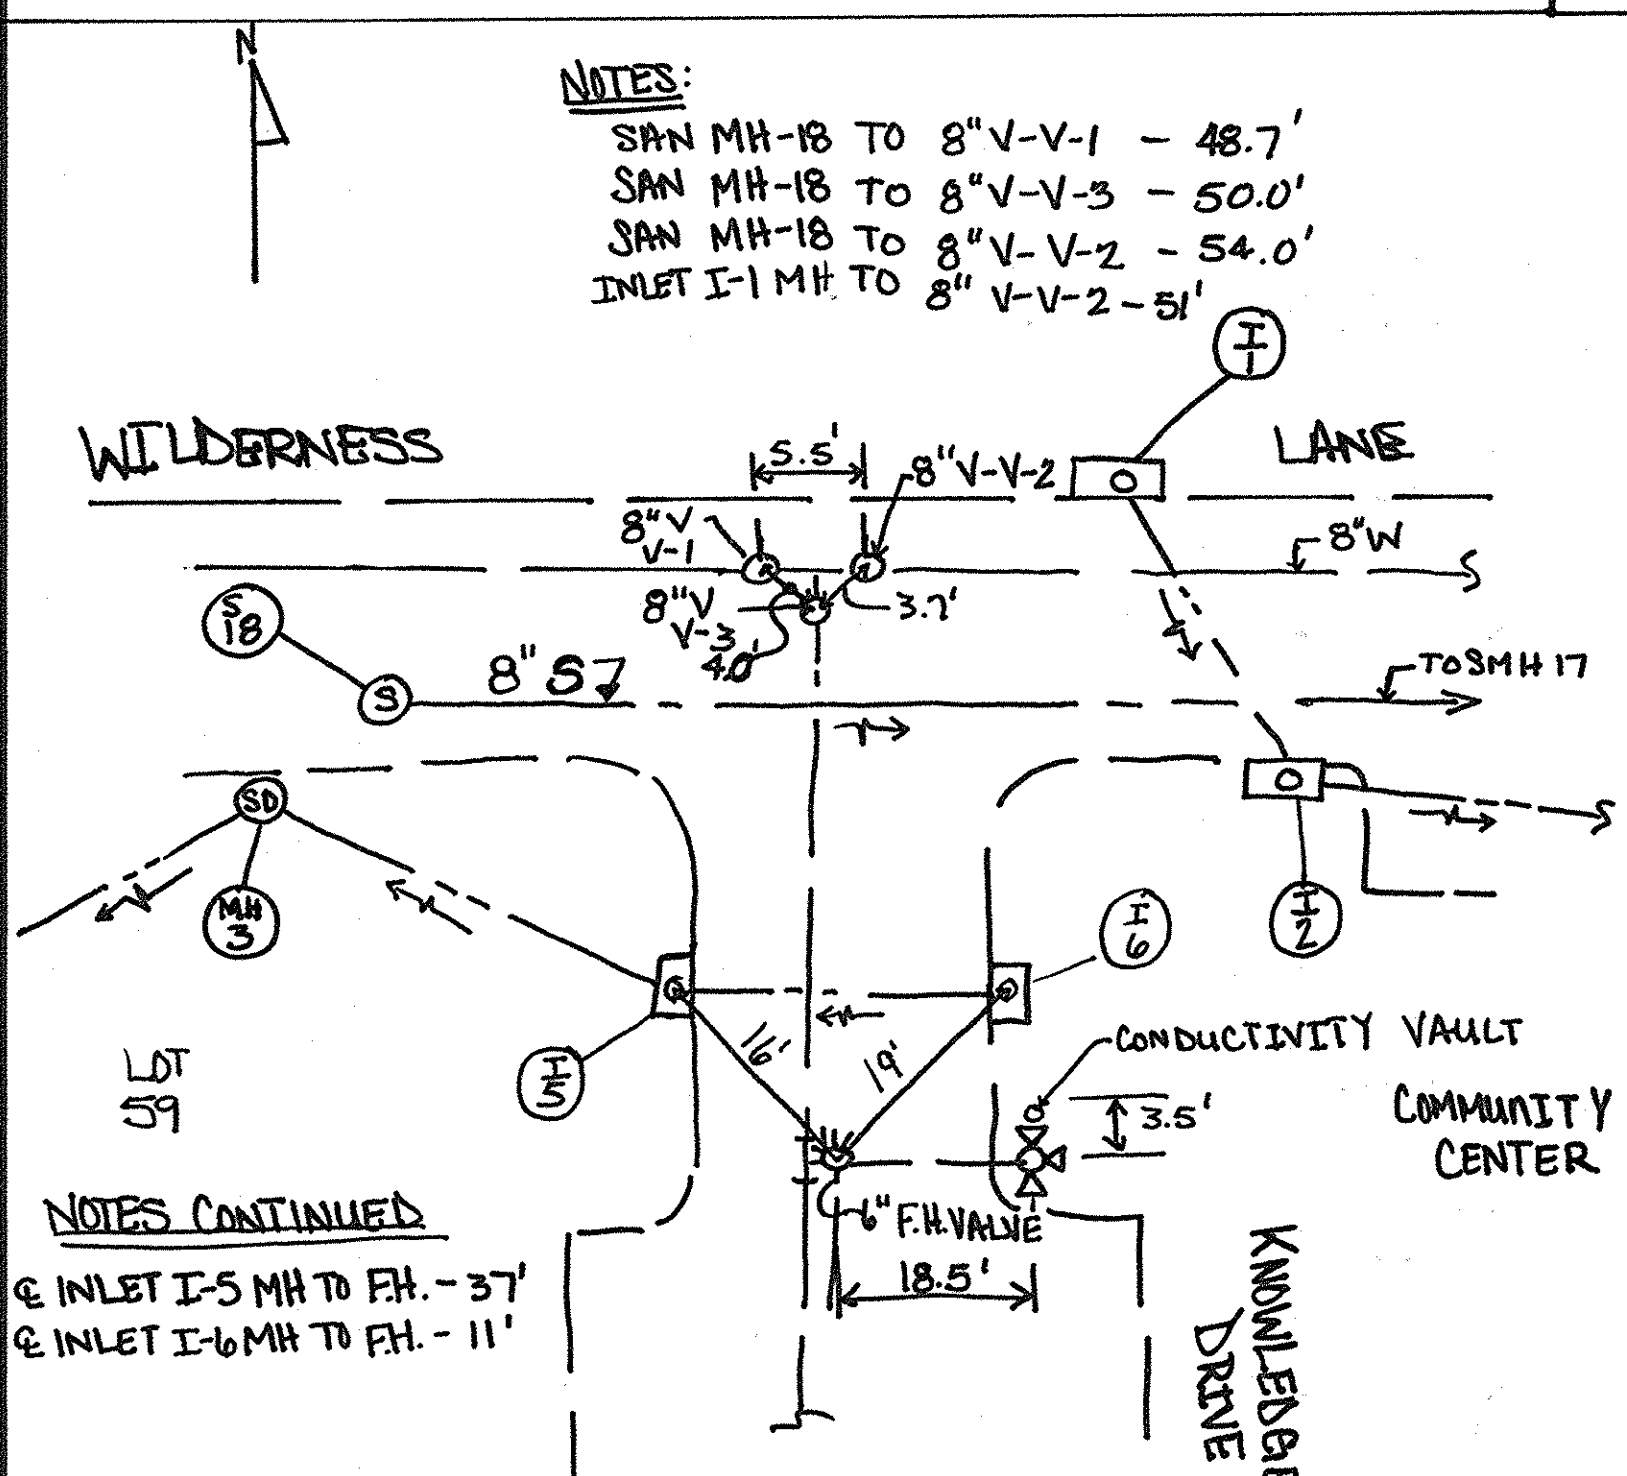 N
NOTES:
SAN MH-18 TO 8" V-V-1 - 48.7'
SAN MH-18 TO 8" V-V-3 - 50.0'
SAN MH-18 TO 8" V-V-2 - 54.0'
INLET I-1 MH TO 8" V-V-2 - 51'
I
1
WILDERNESS
LANE
5.5'
8" V-V-2
8" V
V-1
8" W
8" V
V-3
3.7'
4.0'
S
18
S
8" S
TO SMH 17
SD
MH
3
I
6
I
2
I
5
16'
19'
CONDUCTIVITY VAULT
3.5'
LOT
59
COMMUNITY
CENTER
6" F.H. VALVE
18.5'
NOTES CONTINUED
℄ INLET I-5 MH TO F.H. - 37'
℄ INLET I-6 MH TO F.H. - 11'
KNOWLEDGE
DRIVE